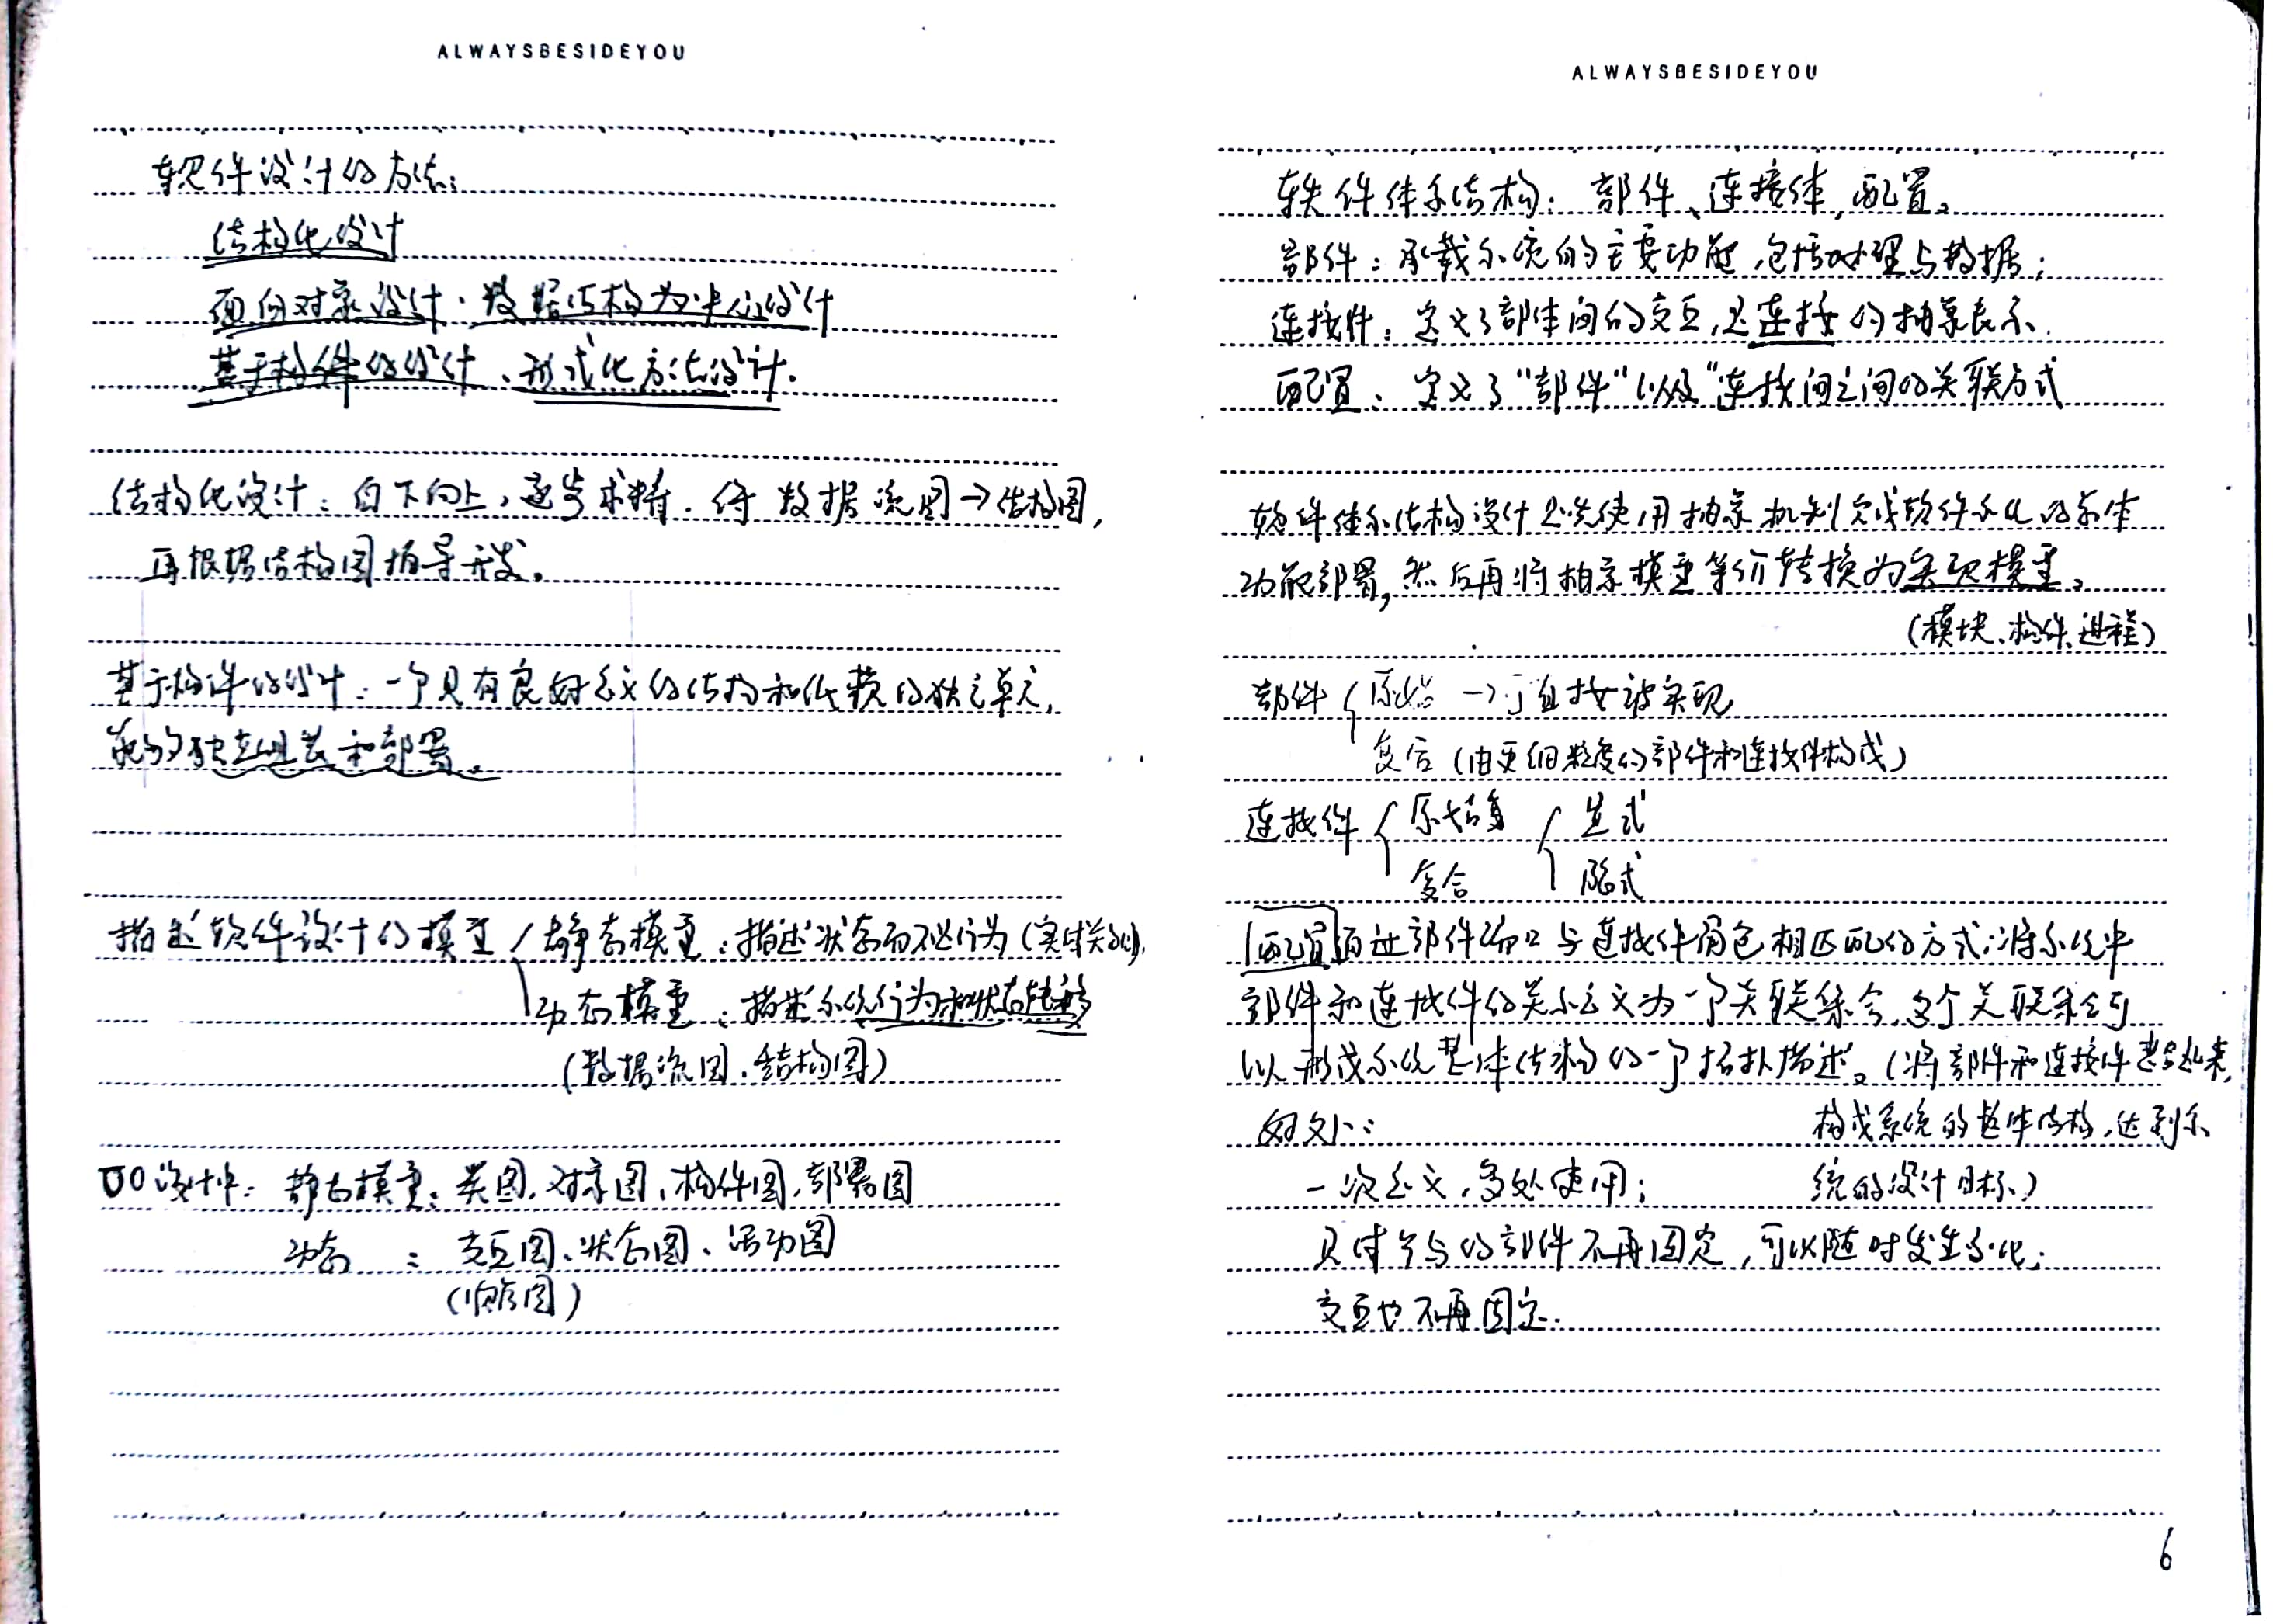 ALWAYSBESIDEYOU
软件设计的方法:
结构化设计
面向对象设计、数据结构为中心设计
基于构件的设计、形式化方法设计.
结构化设计: 自下向上, 逐步求精. 将 数据流图→结构图,
再根据结构图指导开发。
基于构件的设计: 一个具有良好定义的结构和依赖的独立单元,
能够独立组装和部署。
描述软件设计的模型 静态模型: 描述状态而不是行为 (实体关系),
动态模型: 描述系统行为和状态转移
(数据流图、结构图)
OO设计中: 静态模型: 类图、对象图、构件图、部署图
动态 : 交互图、状态图、活动图
(顺序图)
ALWAYSBESIDEYOU
软件体系结构: 部件、连接体, 配置。
部件: 承载系统的主要功能, 包括处理与数据;
连接件: 定义了部件间的交互, 是连接的抽象表示.
配置: 定义了"部件"以及"连接间之间的关联方式
软件体系结构设计是先使用抽象机制完成软件系统的总体
功能部署, 然后再将抽象模型等价转换为实现模型。
(模块、构件、进程)
部件 原始 → 可直接被实现
复合 (由更细粒度的部件和连接件构成)
连接件 原始 显式
复合 隐式
配置通过部件端口与连接件角色相匹配的方式, 将系统中
部件和连接件的关系定义为一个关联集合, 这个关联集合可
以形成系统整体结构的一个拓扑描述。(将部件和连接件 起来,
好处: 构成系统的整体结构, 达到系
一次定义, 多处使用; 统的设计目标)
只是参与的部件不再固定, 可以随时发生变化;
交互也不再固定.
6